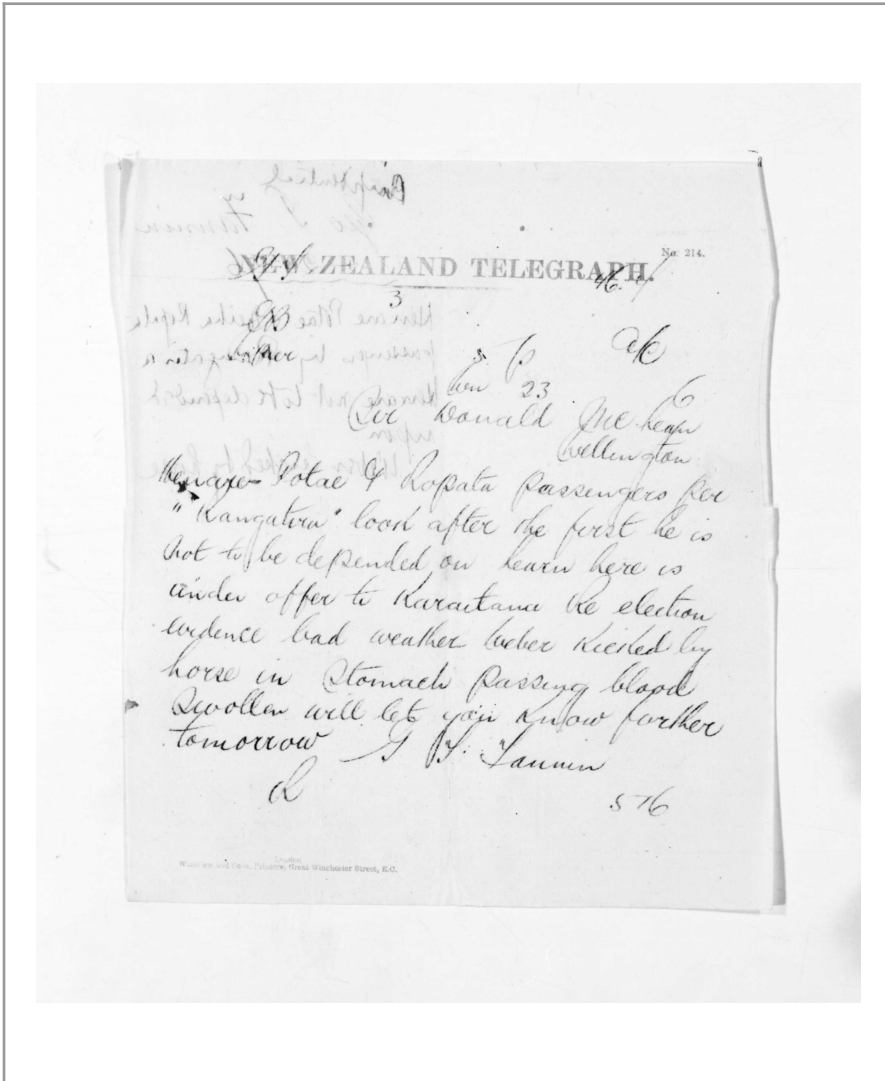 No. 214.
NEW ZEALAND TELEGRAPH.
3
23
Sir Donald McLean
Wellington
Henare Potae & Ropata passengers per
"Rangatira" look after the first he is
not to be depended on learn here is
under offer to Karaitiana the election
evidence bad weather Weber kicked by
horse in stomach passing blood
swollen will let you know further
tomorrow G F Fannin
576
London
Waterlow and Sons, Printers, Great Winchester Street, E.C.